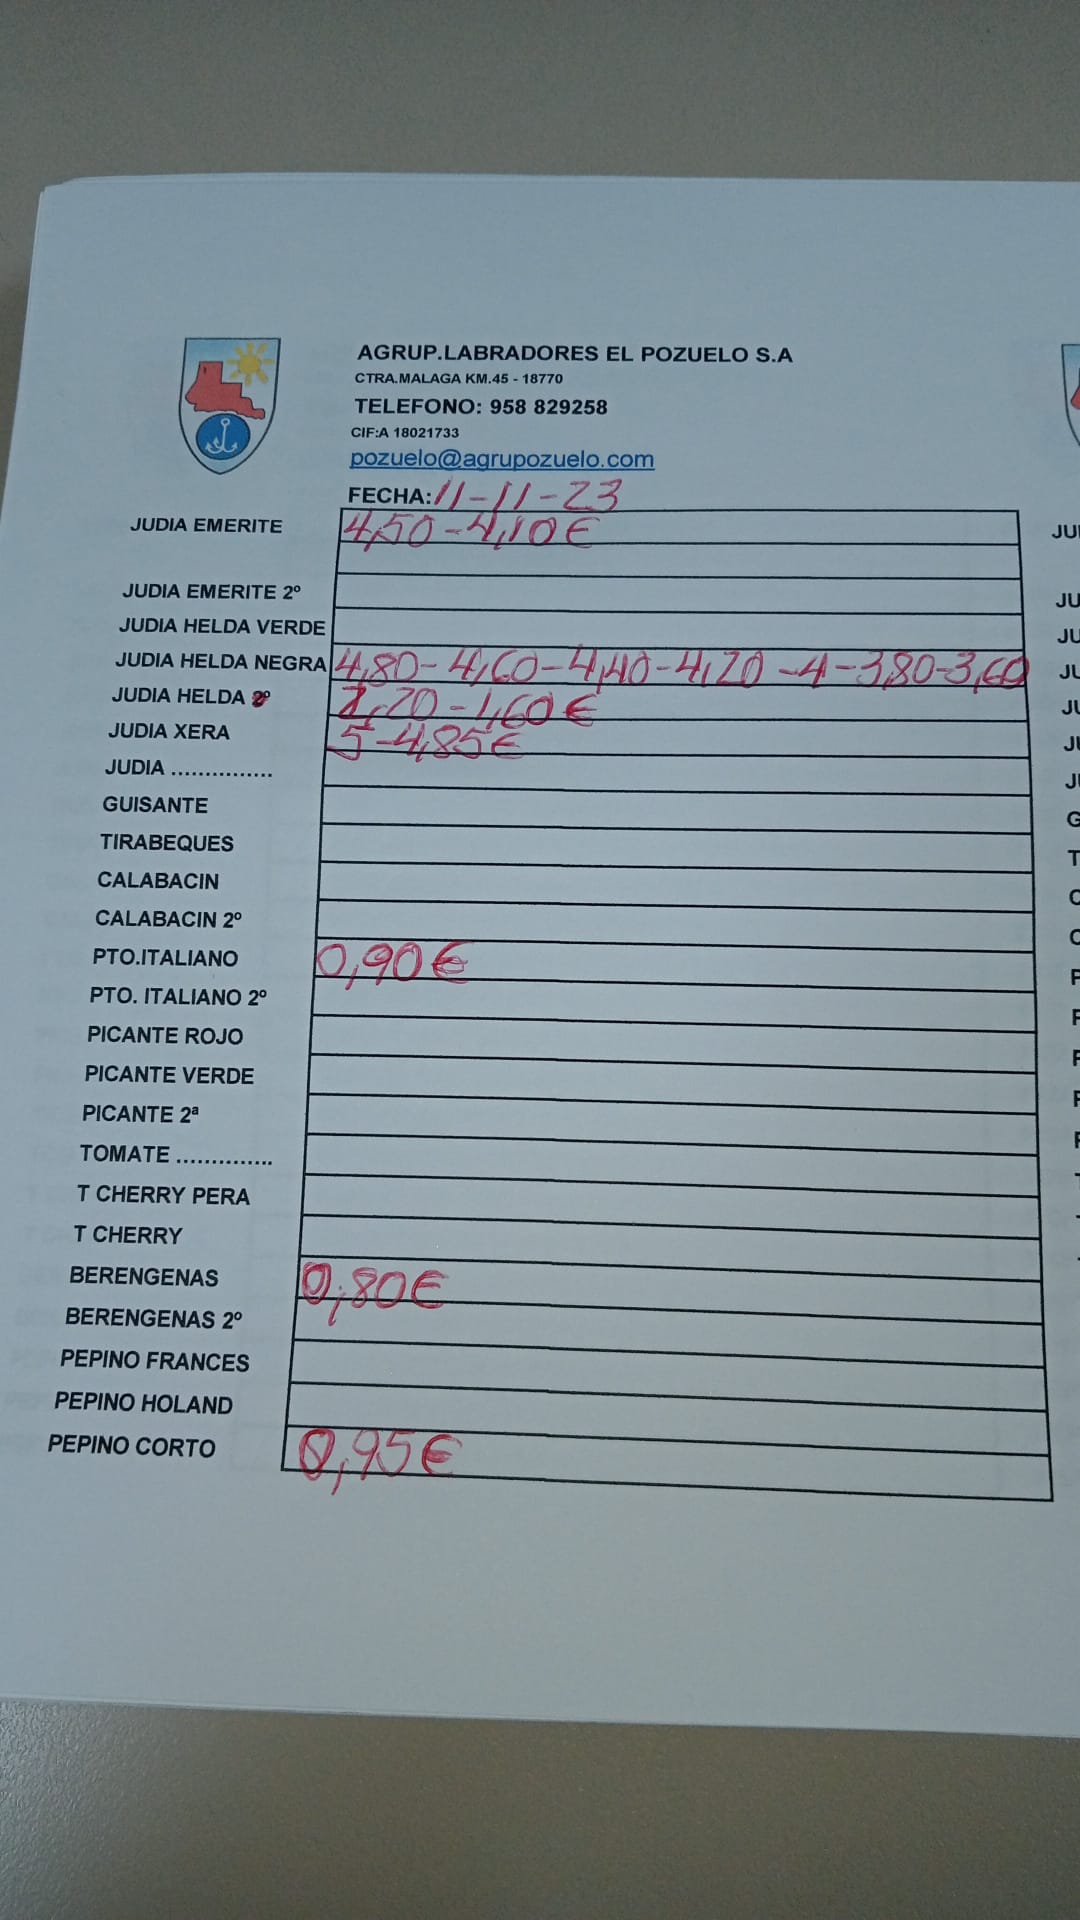 AGRUP.LABRADORES EL POZUELO S.A
CTRA.MALAGA KM.45 - 18770
TELEFONO: 958 829258
CIF:A 18021733
pozuelo@agrupozuelo.com
FECHA: 11-11-23
JUDIA EMERITE 4,50-4,10€
JUDIA EMERITE 2º
JUDIA HELDA VERDE
JUDIA HELDA NEGRA 4,80-4,60-4,40-4,20-4-3,80-3,60
JUDIA HELDA 2º ,20-1,60€
JUDIA XERA 5-4,85€
JUDIA ...............
GUISANTE
TIRABEQUES
CALABACIN
CALABACIN 2º
PTO.ITALIANO 0,90€
PTO. ITALIANO 2º
PICANTE ROJO
PICANTE VERDE
PICANTE 2ª
TOMATE ..............
T CHERRY PERA
T CHERRY
BERENGENAS 0,80€
BERENGENAS 2º
PEPINO FRANCES
PEPINO HOLAND
PEPINO CORTO 0,95€